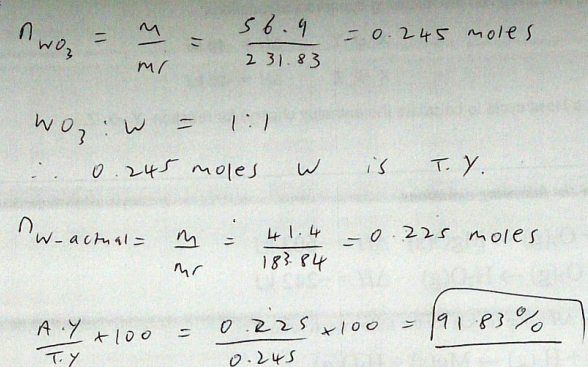 n WO3 = m/mr = 56.9/231.83 = 0.245 moles
WO3 : W = 1:1
∴ 0.245 moles W is T.Y.
n W-actual = m/mr = 41.4/183.84 = 0.225 moles
A.Y/T.Y × 100 = 0.225/0.245 × 100 = 91.83%